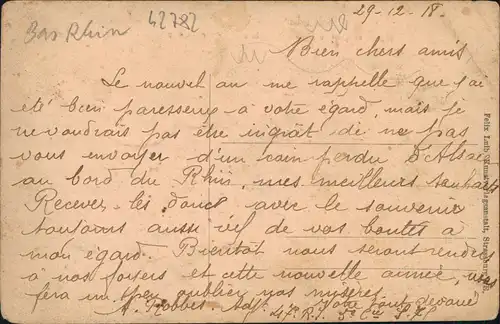 Bas Rhin
42782
29-12-18.
Bien chers amis
Le nouvel an me rappelle que j'ai
été bien paresseux à votre égard, mais je
ne voudrais pas être ingrat de ne pas
vous envoyer d'un coin perdu d'Alsace
au bord du Rhin, mes meilleurs souhaits
Recevez les donc avec le souvenir
toujours aussi vif de vos bontés à
mon égard. Bientôt nous seront rendus
à nos foyers et cette nouvelle année, nous
fera un peu oublier nos misères.
Votre tout dévoué
A. Robbes Adj.
Felix Luib, Strassburg